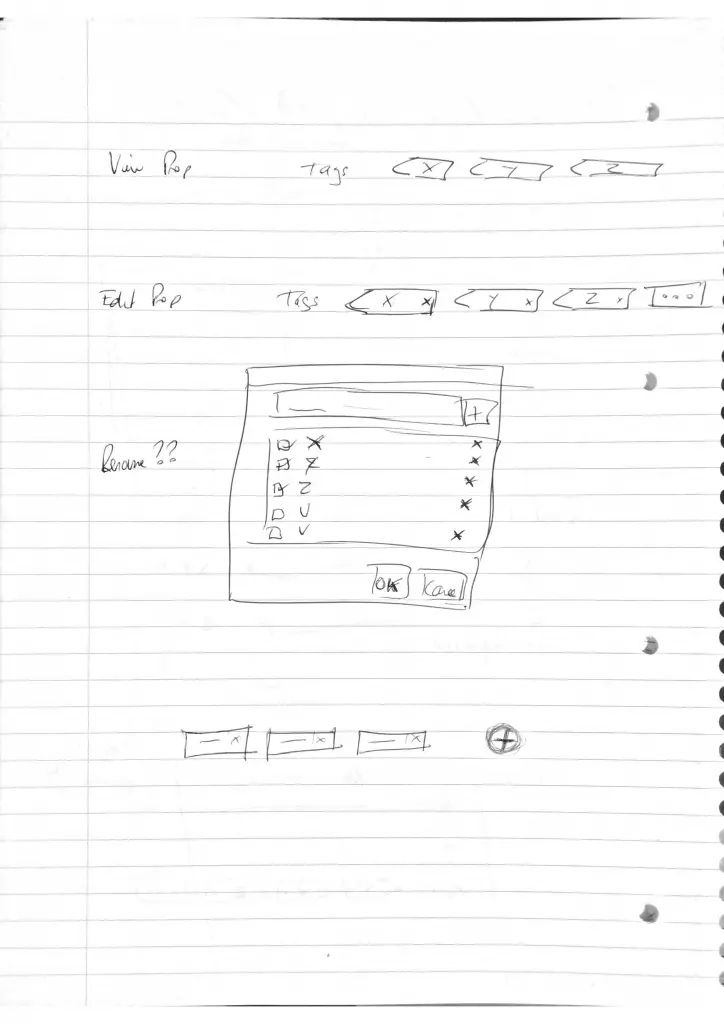 View Prop Tags X Y Z
Edit Prop Tags X x Y x Z x ...
+
Rename ??
X x
Y x
Z x
U x
V x
OK Kancel
x x x +